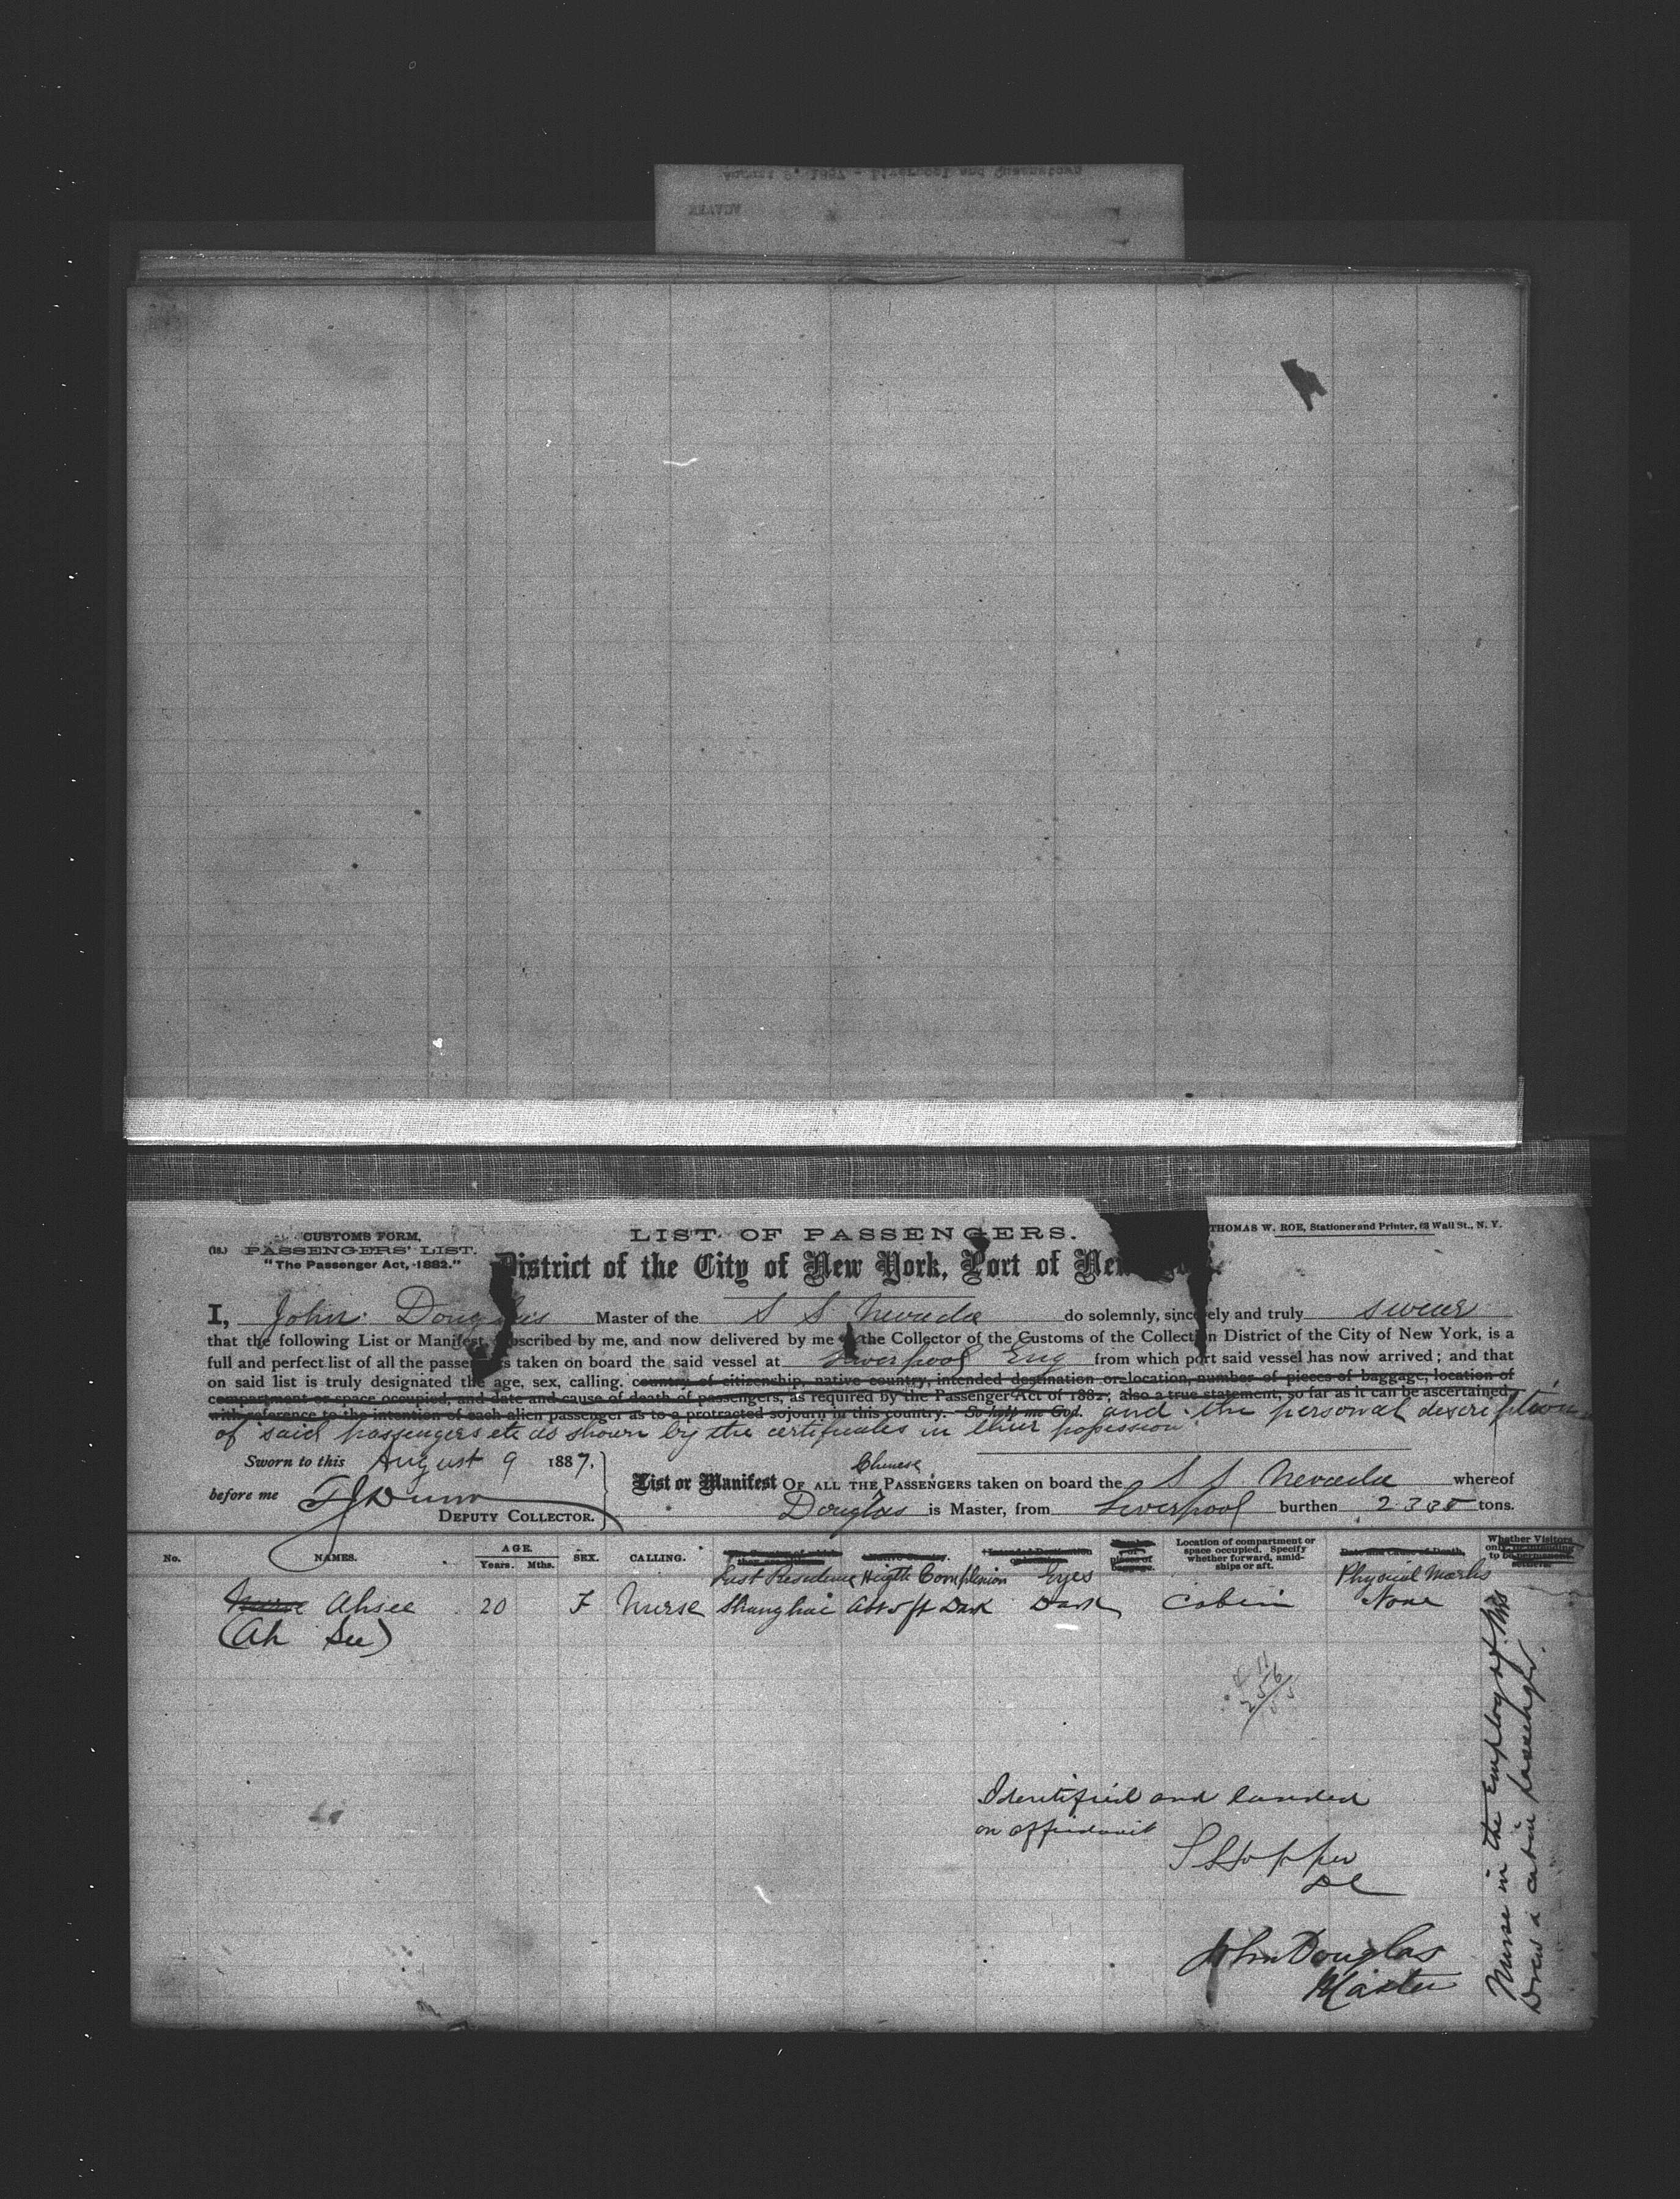 August 9, 1887 - Liverpool and Queenstown
NEVADA
CUSTOMS FORM,
(18.) PASSENGERS' LIST.
"The Passenger Act, 1882."
LIST OF PASSENGERS.
THOMAS W. ROE, Stationer and Printer, 63 Wall St., N. Y.
District of the City of New York, Port of New
I, John Douglas Master of the S S Nevada do solemnly, sincerely and truly swear
that the following List or Manifest, subscribed by me, and now delivered by me the Collector of the Customs of the Collection District of the City of New York, is a
full and perfect list of all the passengers taken on board the said vessel at Liverpool Eng from which port said vessel has now arrived; and that
on said list is truly designated the age, sex, calling, country of citizenship, native country, intended destination or location, number of pieces of baggage, location of
compartment or space occupied, and date and cause of death of passengers, as required by the Passenger Act of 1882; also a true statement, so far as it can be ascertained,
with reference to the intention of each alien passenger as to a protracted sojourn in this country. So help me God. and the personal description
of said passengers etc as shown by the certificates in their possession
Sworn to this August 9 1887,
before me TJ Dunn
DEPUTY COLLECTOR.
Chinese
List or Manifest OF ALL THE PASSENGERS taken on board the S S Nevada whereof
Douglas is Master, from Liverpool burthen 2335 tons.
No. NAMES. AGE. Years. Mths. SEX. CALLING. Location of compartment or space occupied. Specify whether forward, amidships or aft. Date and Cause of Death. Whether Visitors
Last Residence Higth Complexion Eyes Physical Marks
Nurse Ahsee 20 F Nurse Shanghai Abt 5 ft Dark Dark Cabin None
(Ah See)
Identified and landed
on affidavit
DC
John Douglas
Master
Nurse in the employ of Mrs
Drew a cabin passenger.